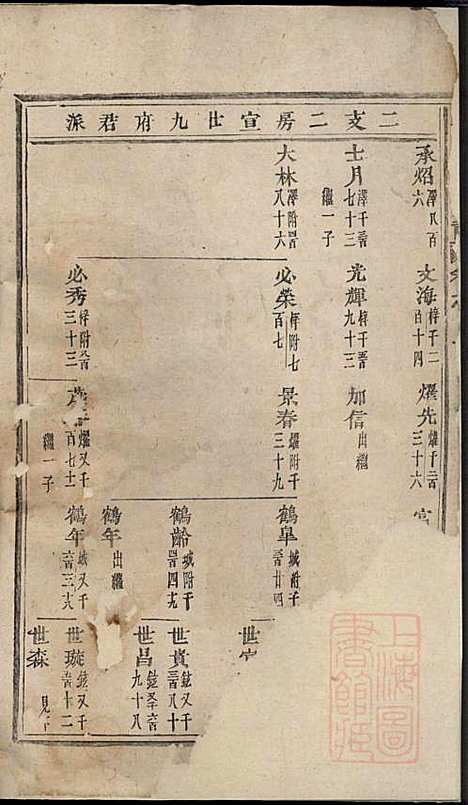 二支二房宣廿九府君派
承炤 澤八百六
文海 梓千二百十四
燿先 燿千二百三十六
士月 澤千二百七十三 繼一子
光輝 梓千二百九十三
加信 出繼
大林 澤附二百八十六
必榮 梓附七百七
景春 燿附千三十九
鶴皐 城附千二百廿四
世
鶴齡 城附千二百四九
世貴 鉉又千二百八十
世昌 鉉又千二百九十八
鶴年 出繼
必秀 梓附八百三十三
燿又千百七十二 繼一子
鶴年 城又千二百三六
世璇 鉉又千二百十二
世森 見下
上海圖書館藏